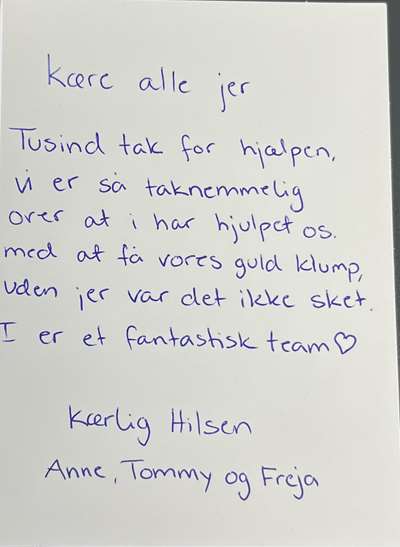 Kære alle jer
Tusind tak for hjælpen,
vi er så taknemmelig
over at i har hjulpet os.
med at få vores guld klump,
uden jer var det ikke sket.
I er et fantastisk team♡
Kærlig Hilsen
Anne, Tommy og Freja